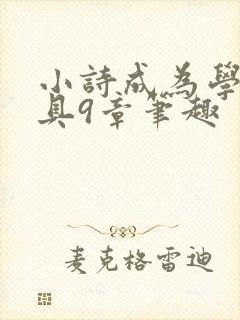 小詩成為學
具9章筆趣
麦克格雷迪